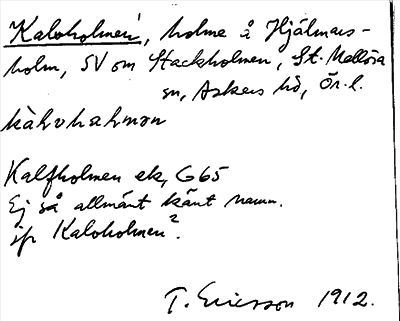 Kaloholmen¹, holme å Hjälmars-
holm, SV om Stackholmen, St. Mellösa
sn, Askers hd, Ör. l.
Kalfholmen ek, G65
Ej så allmänt känt namn.
jfr Kaloholmen².
T. Ericsson 1912.